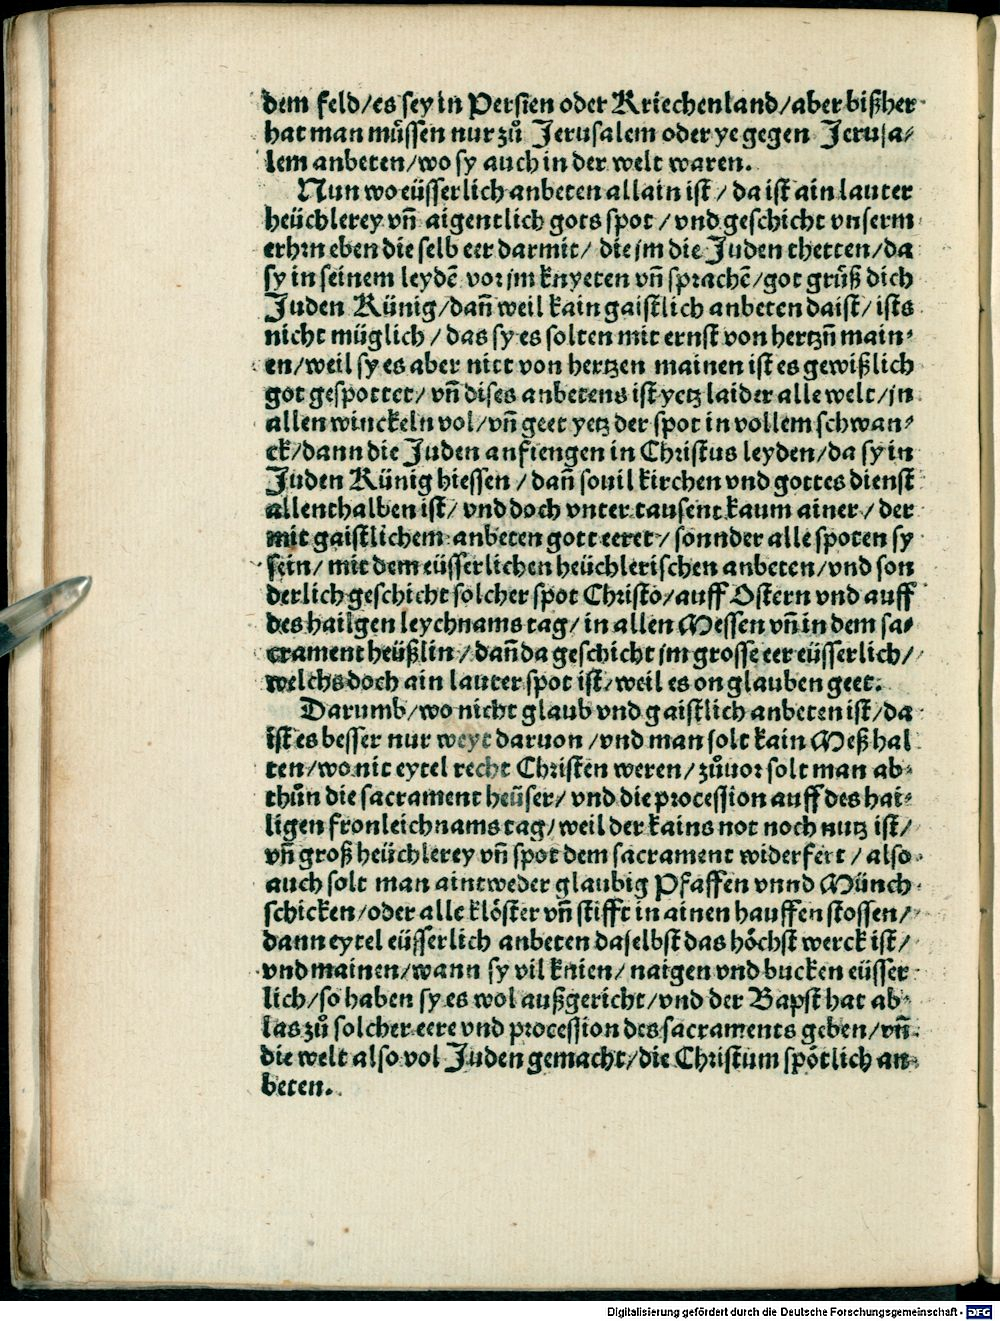 dem feld/es sey in Persien oder Kriechenland/aber bißher
hat man müssen nur zů Jerusalem oder ye gegen Jerusa-
lem anbeten/wo sy auch in der welt waren.
Nun wo eüsserlich anbeten allain ist/ da ist ain lauter
heüchlerey vñ aigentlich gots spot /vnd geschicht vnserm
erhrn eben die selb eer darmit/ die jm die Juden thetten/da
sy in seinem leydē vor jm knyeten vñ sprachē/got grüß dich
Juden Künig/dañ weil kain gaistlich anbeten da ist/ ists
nicht müglich / das sy es solten mit ernst von hertzñ main-
en/weil sy es aber nitt von hertzen mainen ist es gewißlich
got gespottet/ vñ dises anbetens ist yetz laider alle welt/jn
allen winckeln vol/vñ geet yetz der spot in vollem schwan-
ck/dann die Juden anfiengen in Christus leyden/da sy in
Juden Künig hiessen / dañ souil kirchen vnd gottes dienst
allenthalben ist/ vnd doch vnter tausent kaum ainer/ der
mit gaistlichem anbeten gott eeret/ sonnder alle spoten sy
sein/ mit dem eüsserlichen heüchlerischen anbeten/vnd son
derlich geschicht solcher spot Christo/auff Ostern vnd auff
des hailgen leychnams tag/ in allen Messen vñ in dem sa-
crament heüßlin/ dañ da geschicht jm grosse eer eüsserlich/
welchs doch ain lauter spot ist/weil es on glauben geet.
Darumb/wo nicht glaub vnd gaistlich anbeten ist/da
ist es besser nur weyt daruon /vnd man solt kain Meß hal
ten/wo nit eytel recht Christen weren/ zůuor solt man ab-
thůn die sacrament heüser/ vnd die procession auff des hai-
ligen fronleichnams tag/ weil der kains not noch nutz ist/
vñ groß heüchlerey vñ spot dem sacrament widerfert / also
auch solt man aintweder glaubig Pfaffen vnnd Münch
schicken/oder alle klöster vñ stifft in ainen hauffen stossen/
dann eytel eüsserlich anbeten daselbst das höchst werck ist/
vnd mainen/wann sy vil knien/ naigen vnd bucken eüsser
lich/so haben sy es wol außgericht/vnd der Bapst hat ab-
las zů solcher eere vnd procession des sacraments geben/vñ
die welt also vol Juden gemacht/die Christum spötlich an-
beten.
Digitalisierung gefördert durch die Deutsche Forschungsgemeinschaft - DFG